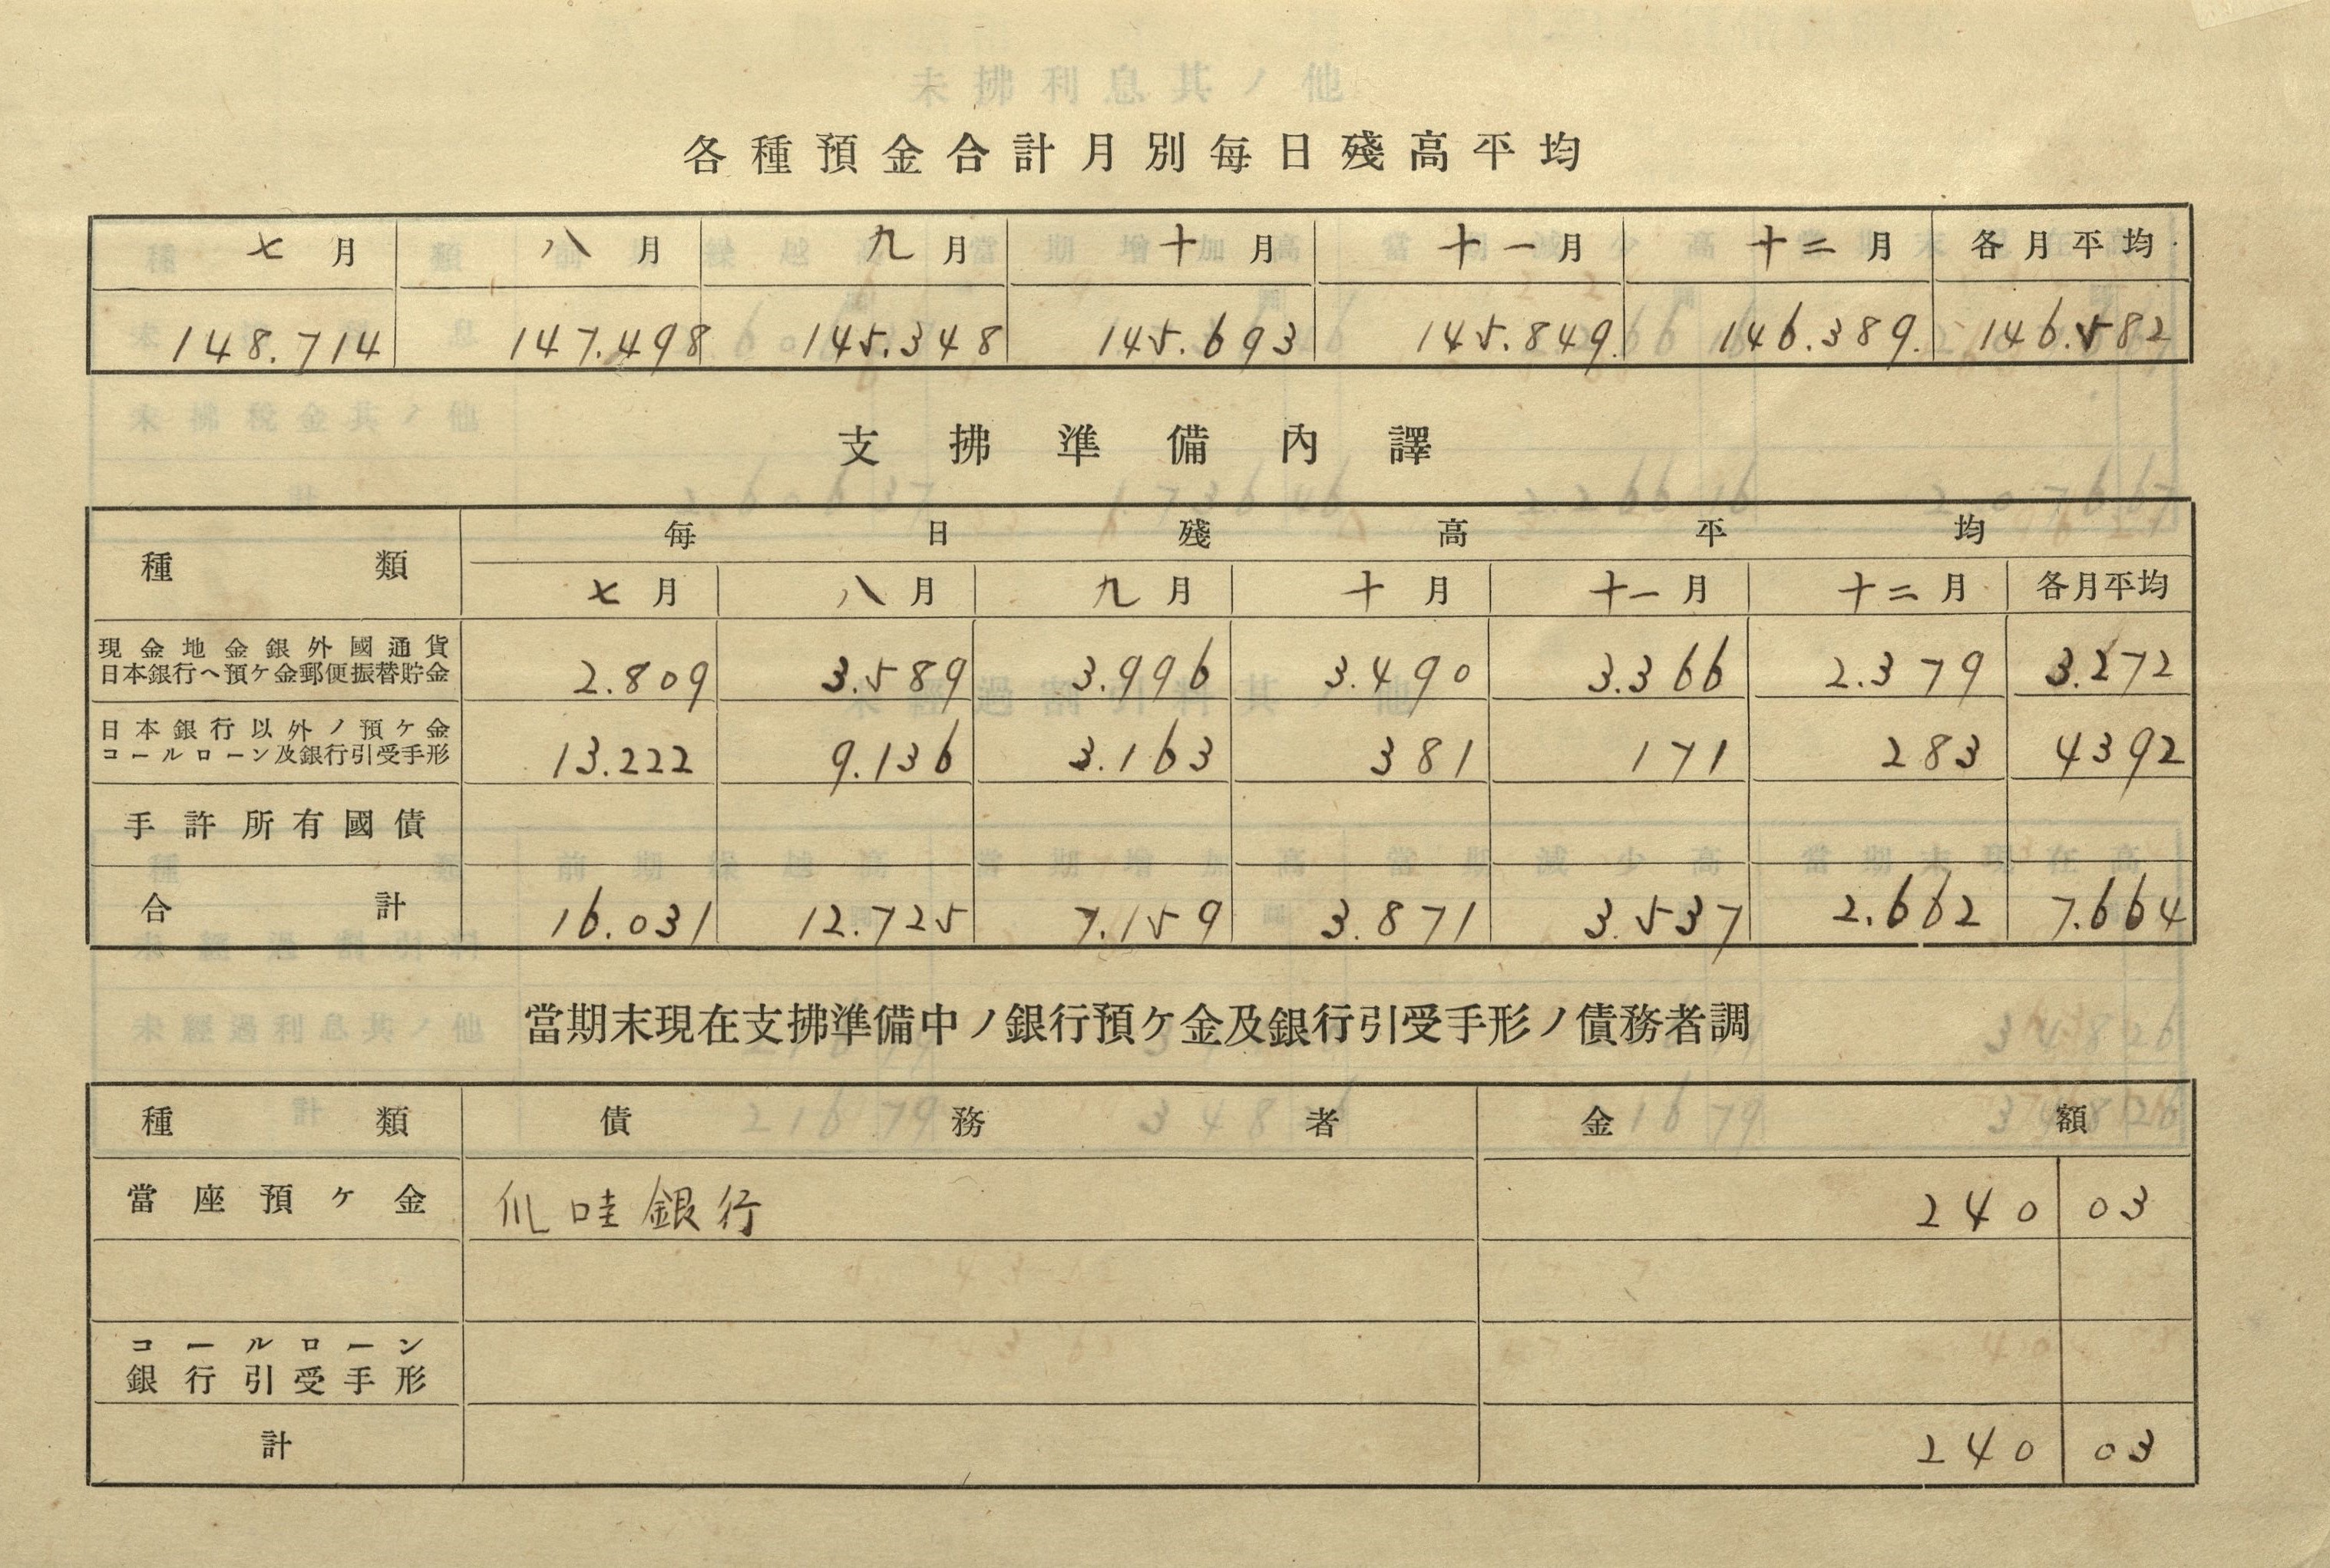 各種預金合計月別每日殘高平均
七月 八月 九月 十月 十一月 十二月 各月平均
148.714 147.498 145.348 145.693 145.849. 146.389. 146.582
支拂準備內譯
種類 每日殘高平均
七月 八月 九月 十月 十一月 十二月 各月平均
現金地金銀外國通貨
日本銀行ヘ預ケ金郵便振替貯金 2.809 3.589 3.996 3.490 3.366 2.379 3.272
日本銀行以外ノ預ケ金
コールローン及銀行引受手形 13.222 9.136 3.163 381 171 283 4392
手許所有國債
合計 16.031 12.725 7.159 3.871 3.537 2.662 7.664
當期末現在支拂準備中ノ銀行預ケ金及銀行引受手形ノ債務者調
種類 債務者 金額
當座預ケ金 爪哇銀行 240 03
コールローン
銀行引受手形
計 240 03